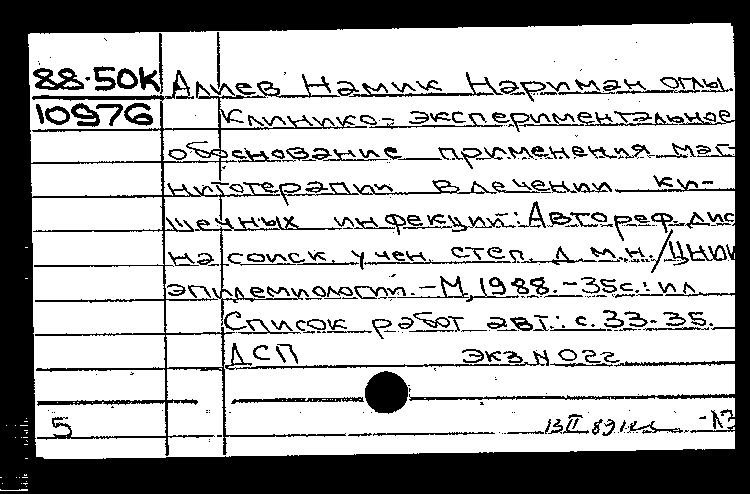 88-50К Алиев Намик Нариман оглы.
10976 Клинико-экспериментальное
обоснование применения маг-
нитотерапии в лечении ки-
шечных инфекций: Автореф. дис
на соиск. учен. степ. д.м.н./ЦНИИ
эпидемиологии.-М, 1988.-35с.: ил.
Список работ авт.: с. 33-35.
ДСП экз N 022
5 13 II 89